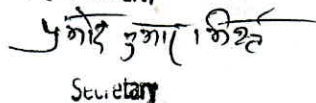 प्रमोद कुमार
Secretary